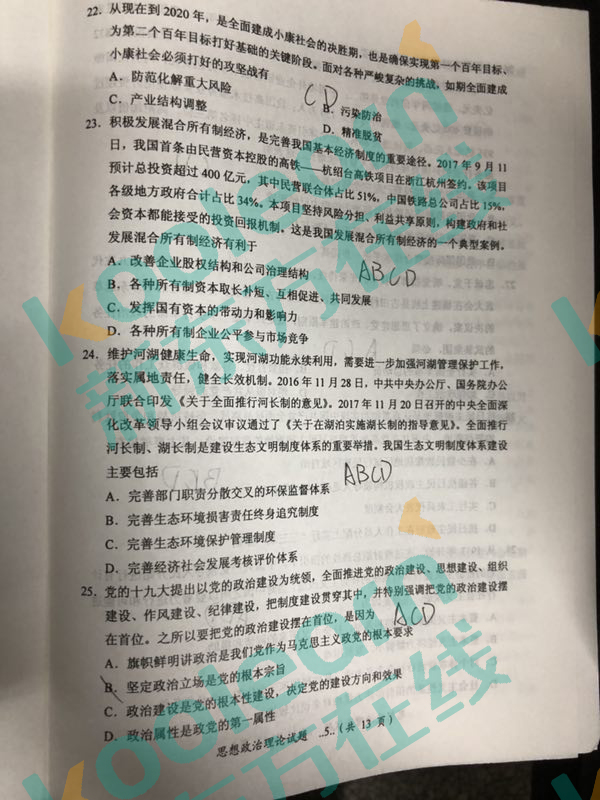 22. 从现在到2020年，是全面建成小康社会的决胜期，也是确保实现第一个百年目标、
为第二个百年目标打好基础的关键阶段。面对各种严峻复杂的挑战，如期全面建成
小康社会必须打好的攻坚战有
CD
A. 防范化解重大风险
B. 污染防治
C. 产业结构调整
D. 精准脱贫
23. 积极发展混合所有制经济，是完善我国基本经济制度的重要途径。2017年9月11
日，我国首条由民营资本控股的高铁——杭绍台高铁项目在浙江杭州签约。该项目
预计总投资超过400亿元，其中民营联合体占比51%，中国铁路总公司占比15%，
各级地方政府合计占比34%。本项目坚持风险分担、利益共享原则，构建政府和社
会资本都能接受的投资回报机制。这是我国发展混合所有制经济的一个典型案例。
发展混合所有制经济有利于
ABCD
A. 改善企业股权结构和公司治理结构
B. 各种所有制资本取长补短、互相促进、共同发展
C. 发挥国有资本的带动力和影响力
D. 各种所有制企业公平参与市场竞争
24. 维护河湖健康生命，实现河湖功能永续利用，需要进一步加强河湖管理保护工作，
落实属地责任，健全长效机制。2016年11月28日，中共中央办公厅、国务院办公
厅联合印发《关于全面推行河长制的意见》。2017年11月20日召开的中央全面深
化改革领导小组会议审议通过了《关于在湖泊实施湖长制的指导意见》。全面推行
河长制、湖长制是建设生态文明制度体系的重要举措。我国生态文明制度体系建设
主要包括
ABCD
A. 完善部门职责分散交叉的环保监督体系
B. 完善生态环境损害责任终身追究制度
C. 完善生态环境保护管理制度
D. 完善经济社会发展考核评价体系
25. 党的十九大提出以党的政治建设为统领，全面推进党的政治建设、思想建设、组织
建设、作风建设、纪律建设，把制度建设贯穿其中，并特别强调把党的政治建设摆
在首位。之所以要把党的政治建设摆在首位，是因为
ACD
A. 旗帜鲜明讲政治是我们党作为马克思主义政党的根本要求
B. 坚定政治立场是党的根本宗旨
C. 政治建设是党的根本性建设，决定党的建设方向和效果
D. 政治属性是政党的第一属性
思想政治理论试题 ..5..(共13页)
koolearn
新东方在线
koolearn
新东方在线